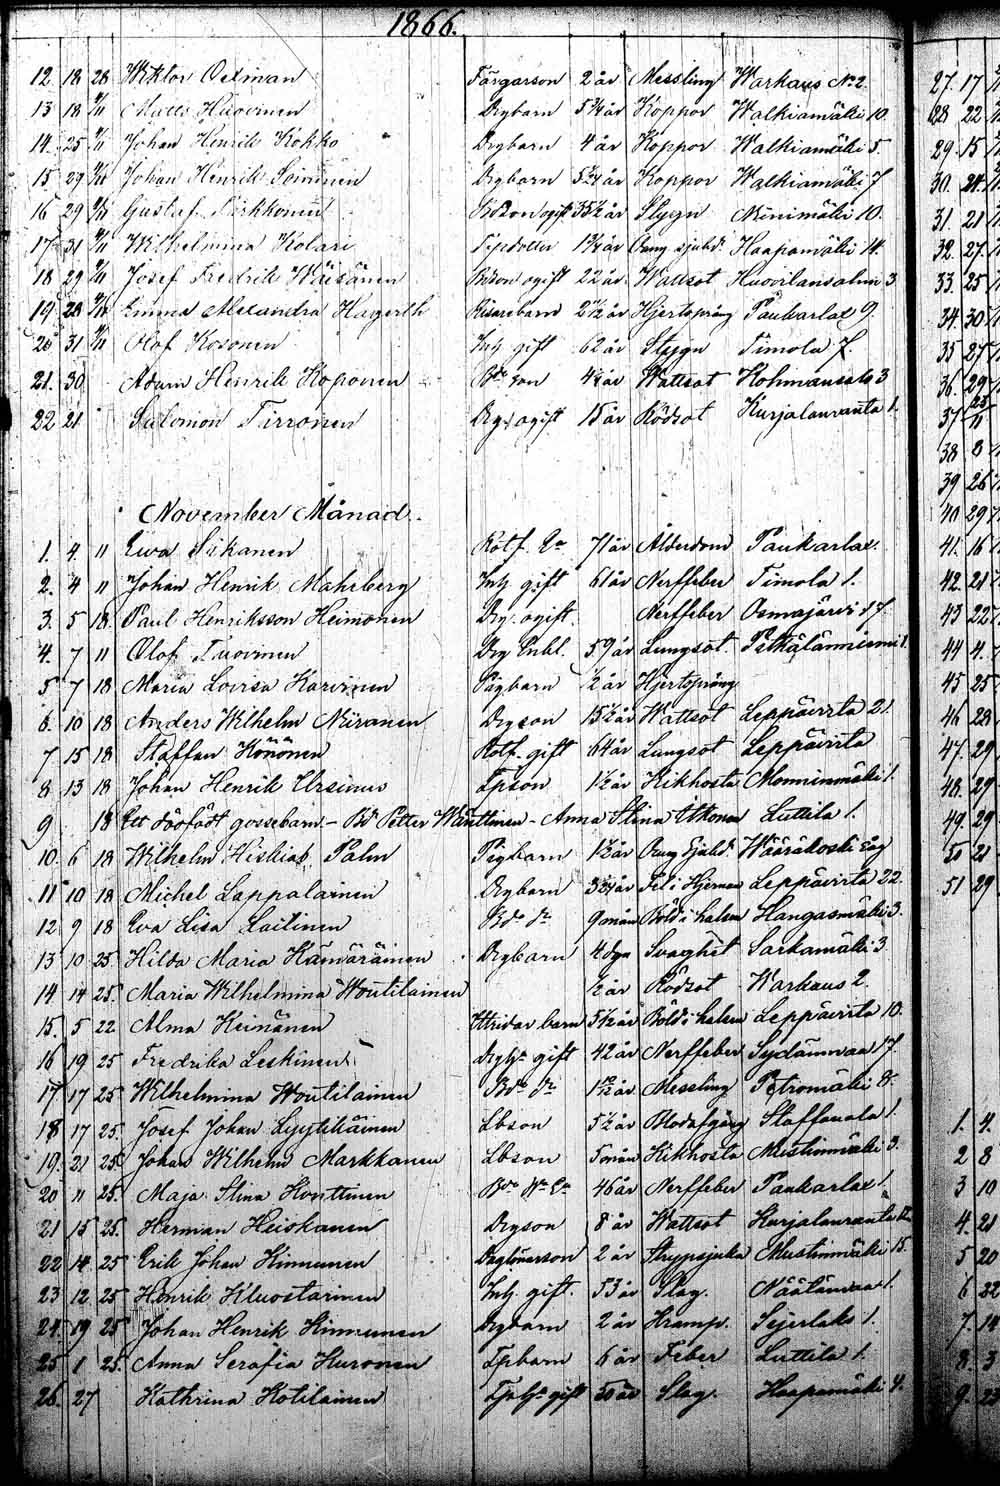 1866.
12 18 28 Wiktor Oetman Färgarson 2 år Messling Warkaus No 2.
13 18 4/11 Matts Huovinen Drgbarn 5 3/4 år Koppor Walkiamäki 10
14. 25 4/11 Johan Henrik Kokko Drgbarn 4 år Koppor Walkiamäki 5.
15 29 4/11 Johan Henrik Soininen Drgbarn år Koppor Walkiamäki 7
16 29 4/11 Gustaf Pirkkonen Bdson ogift 35 1/2 år Slygn Niinimäki 10.
17 31 4/11 Wilhelmina Kolari 1 3/4 år Haapamäki 14.
18 29 4/11 Josef Fredrik Wäisänen Bdson ogift 22 år Wattsot Huovilansalmi 3
19 28 4/11 Emma Alexandra Hagerth 2 1/2 år Hjertsprång Paukarlax 9.
20 31 4/11 Olof Kosonen Inh. gift 62 år Slygn Timola 7.
21. 30 Adam Henrik Koponen Bde son 4 1/4 år Wattsot Kohmansalo 3
22 21 Salomon Tirronen Drg. ogift 15 år Rödsot Kurjalanranta 1.
November Månad.
1. 4 11 Ewa Sikanen Rotf. Ea 71 år Ålderdom Paukarlax.
2. 4 11 Johan Henrik Mahrberg Inh. gift 61 år Nerffeber Timola 1.
3. 5 18 Paul Henriksson Heimonen Drg. ogift. Nerffeber Osmajärvi 17.
4. 7 11 Olof Tuovinen Drg Enkl. 59 år Lungsot. Pitkälänniemi 1.
5 7 18 Maria Lovisa Karvinen Pigbarn 1/2 år Hjertsprång
6. 10 18 Anders Wilhelm Niiranen Drgson 15 1/2 år Wattsot Leppävirta 21.
7 15 18 Staffan Könönen Rotf. gift 64 år Lungsot Leppävirta
8 13 18 Johan Henrik Ursinus Tpson 1 1/2 år Kikhosta Monninmäki 1.
9 18 Ett dödfödt gossebarn - Bd Petter Wänttinen - Anna Stina Utkonen Luttila 1.
10. 6 18 Wilhelm Hiskias Palm Pigbarn år Wääräkoski såg
11 10 18 Michel Lappalainen Drgbarn år Fel i Hjernan Leppävirta 22.
12 9 18 Eva Lisa Laitinen Bds dr 9 mån Böld i halsen Hangasmäki 3.
13 10 25. Hilda Maria Hämäräinen Drgbarn 4 dgn Svaghet Sarkamäki 3.
14 14 25. Maria Wilhelmina Woutilainen 1/2 år Rödsot Warkaus 2.
15. 5 22 Alma Keinänen Ittridar barn 5 1/2 år Böld i halsen Leppävirta 10.
16 19 25 Fredrika Leskinen gift 42 år Nerffeber Sydänmaa 17.
17 17 25. Wilhelmina Woutilainen Bds dr år Messling Petromäki 8.
18 17 25. Josef Johan Lyytikäinen Lbson 5 1/2 år Blodafgång Staffanala 1.
19. 21 25. Johan Wilhelm Markkanen Lbson 5 mån Kikhosta Mustinmäki 3.
20 11 25. Maja Stina Honttinen 46 år Nerffeber Paukarlax 1.
21 15 25. Herman Heiskanen Drgson 8 år Wattsot Kurjalanranta
22 14 25 Erik Johan Kinnunen Daglönarson 2 år Strypsjuka Mustinmäki 15.
23 12 25 Henrik Kluostarinen Inh. gift. 53 år Slag. Näätänmaa 1.
24. 19 25 Johan Henrik Kinnunen Drgbarn 2 år Kramp. Sejerlaks 1.
25 1 25. Anna Serafia Huronen Tpbarn 6 år Feber Luttila 1.
26. 27 Kathrina Kotilainen gift 50 år Slag. Haapamäki 4.
27. 17
28 22
29. 15
30. 24.
31. 21
32. 27.
33. 25
34. 30
35 27
36. 29
37
38 3
39 26
40 29
41. 16
42. 21
43 22
44 4.
45 25
46 28
47. 29
48. 29
49. 29
50 21
51 29
1. 4.
2 8
3 10
4. 21
5 20
6 22
7. 14
8. 3
9. 23